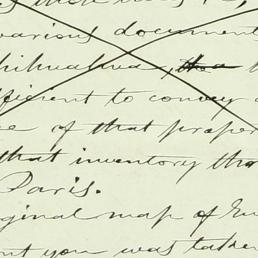 various document
Chihuahua, the
fficient to convey
e of that proper
that inventory tha
Paris.
ginal map of
nt you was taken